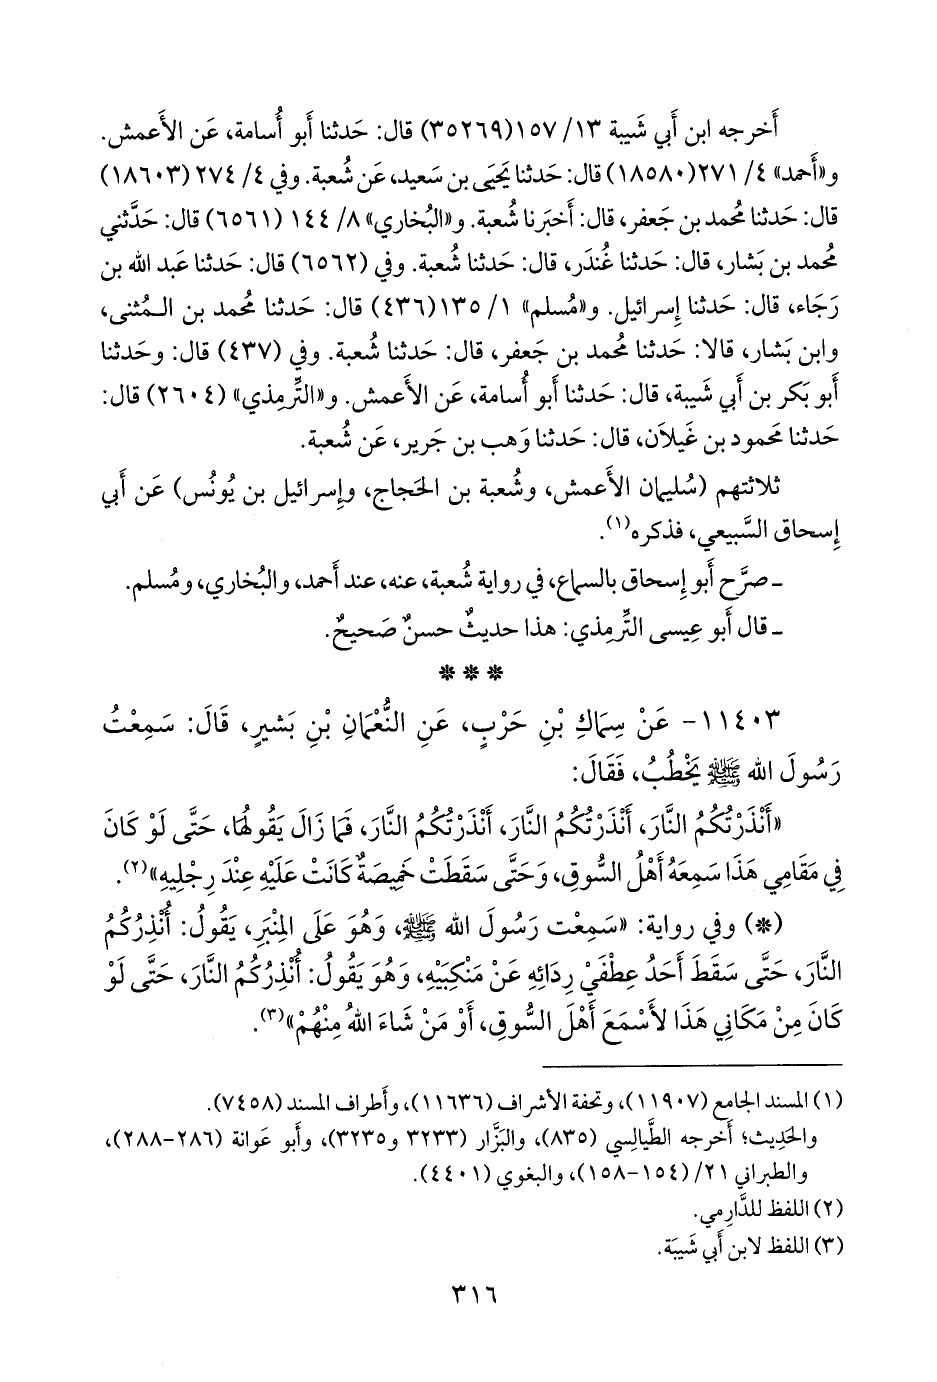 أَخرجه ابن أَبي شَيبة ١٣/ ١٥٧(٣٥٢٦٩) قال: حَدثنا أَبو أُسامة، عَن الأَعمش.
و«أَحمد» ٤/ ٢٧١(١٨٥٨٠) قال: حَدثنا يَحيَى بن سَعيد، عَن شُعبة. وفي ٤/ ٢٧٤ (١٨٦٠٣)
قال: حَدثنا مُحمد بن جَعفر، قال: أَخبَرنا شُعبة. و«البُخاري» ٨/ ١٤٤ (٦٥٦١) قال: حَدَّثني
مُحمد بن بَشار، قال: حَدثنا غُندَر، قال: حَدثنا شُعبة. وفي (٦٥٦٢) قال: حَدثنا عَبد الله بن
رَجَاء، قال: حَدثنا إِسرائيل. و«مُسلم» ١/ ١٣٥(٤٣٦) قال: حَدثنا مُحمد بن الـمُثنى،
وابن بَشار، قالا: حَدثنا مُحمد بن جَعفر، قال: حَدثنا شُعبة. وفي (٤٣٧) قال: وحَدثنا
أَبو بَكر بن أَبي شَيبة، قال: حَدثنا أَبو أُسامة، عَن الأَعمش. و«التِّرمِذي» (٢٦٠٤) قال:
حَدثنا مَحمود بن غَيلاَن، قال: حَدثنا وَهب بن جَرير، عَن شُعبة.
ثلاثتهم (سُليمان الأَعمش، وشُعبة بن الحَجاج، وإِسرائيل بن يُونُس) عَن أَبي
إِسحاق السَّبيعي، فذكره(١).
ـ صرَّح أَبو إِسحاق بالسماع، في رواية شُعبة، عنه، عند أَحمد، والبُخاري، ومُسلم.
ـ قال أَبو عِيسى التِّرمِذي: هذا حديثٌ حسنٌ صَحيحٌ.
* * *
١١٤٠٣- عَنْ سِمَاكِ بْنِ حَرْبٍ، عَنِ النُّعْمَانِ بْنِ بَشيرٍ، قَالَ: سَمِعْتُ
رَسُولَ الله ﷺ يَخْطُبُ، فَقَالَ:
«أَنْذَرْتُكُمُ النَّارَ، أَنْذَرْتُكُمُ النَّارَ، أَنْذَرْتُكُمُ النَّارَ، فَمَا زَالَ يَقُولُهَا، حَتَّى لَوْ كَانَ
فِي مَقَامِي هَذَا سَمِعَهُ أَهْلُ السُّوقِ، وَحَتَّى سَقَطَتْ خَمِيصَةٌ كَانَتْ عَلَيْهِ عِنْدَ رِجْلِيهِ»(٢).
(*) وفي رواية: «سَمِعْت رَسُولَ الله ﷺ، وَهُوَ عَلَى المِنْبَرِ، يَقُولُ: أُنْذِرُكُمُ
النَّارَ، حَتَّى سَقَطَ أَحَدُ عِطْفَيْ رِدَائِهِ عَنْ مَنْكِبَيْهِ، وَهُوَ يَقُولُ: أُنْذِرُكُمُ النَّارَ، حَتَّى لَوْ
كَانَ مِنْ مَكَانِي هَذَا لأَسْمَعَ أَهْلَ السُّوقِ، أَوْ مَنْ شَاءَ اللهُ مِنْهُمْ»(٣).
(١) المسند الجامع (١١٩٠٧)، وتحفة الأشراف (١١٦٣٦)، وأطراف المسند (٧٤٥٨).
والحَدِيث؛ أخرجه الطَّيالِسي (٨٣٥)، والبَزَّار (٣٢٣٣ و٣٢٣٥)، وأبو عَوانة (٢٨٦-٢٨٨)،
والطبراني ٢١/ (١٥٤-١٥٨)، والبغوي (٤٤٠١).
(٢) اللفظ للدَّارِمي.
(٣) اللفظ لابن أَبي شَيبَة.
٣١٦